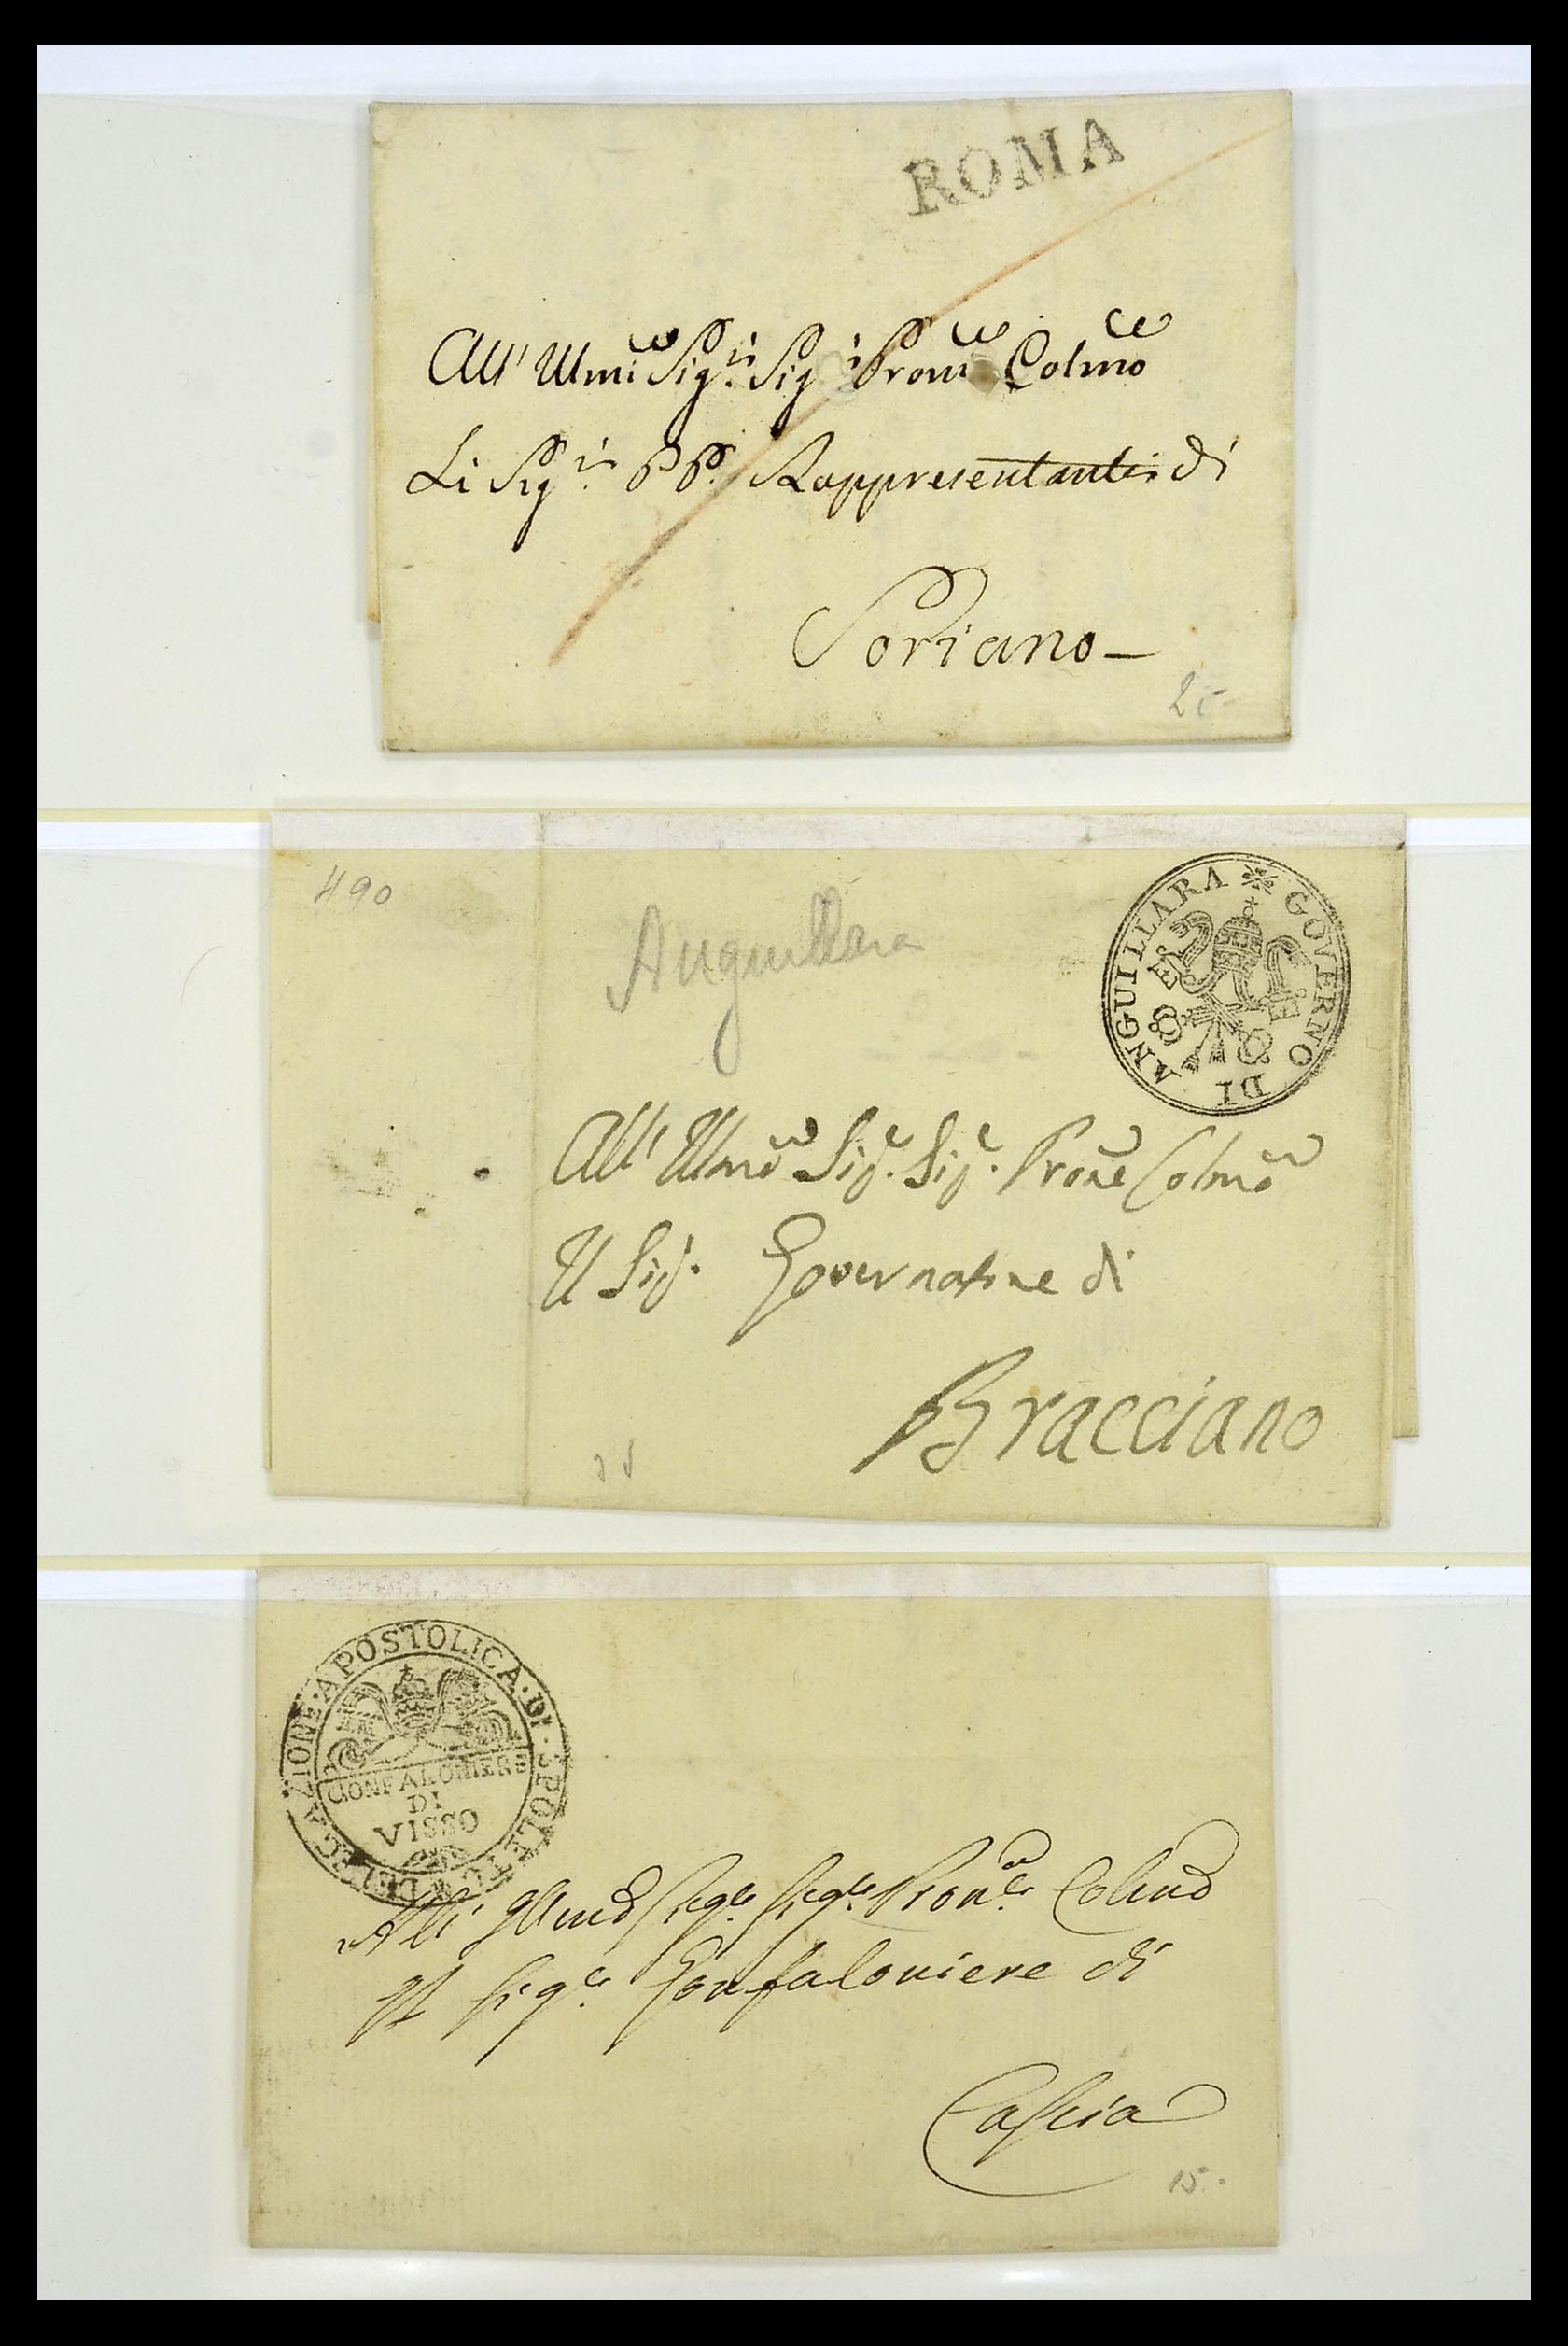 ROMA
All' Illmi Sig.ri Sig.ri Proni Colmi
Li Sig.ri PP. Rappresentanti di
Soriano
25-
490
Anguillara
GOVERNO DI ANGUILLARA
All' Illmo Sig.e Sig.e Prone Colmo
Il Sig.e Governatore di
Bracciano
DELEGAZIONE·APOSTOLICA·DI·SPOLETO
GONFALONIERE
DI
VISSO
All' Illmo Sig.re Sig.re Pron.e Colmo
Il Sig.re Gonfaloniere di
Cascia
15.-